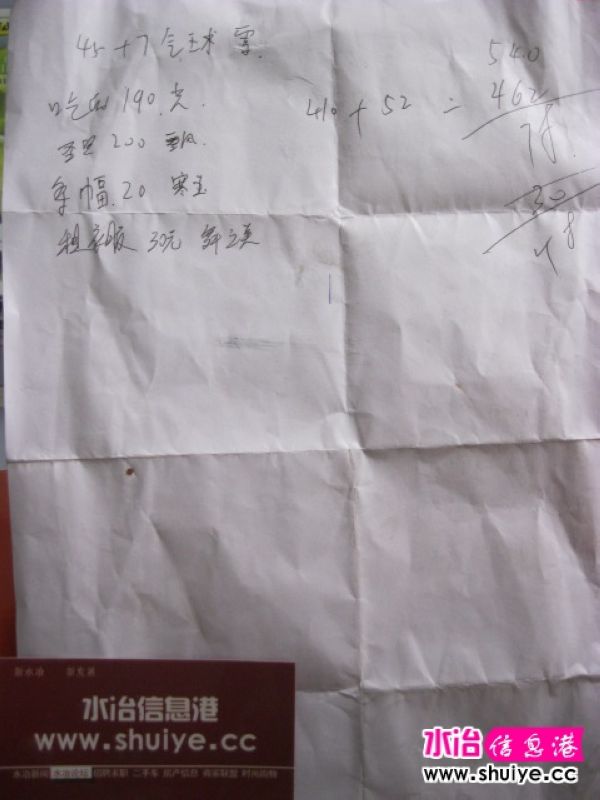 45+7 气球 雪.
540
吃饭 190.光.
410 + 52 =
462
78.
200
条幅.20 寒玉
30
48
租衣服 30元
新水冶 新发展
水冶信息港
www.shuiye.cc
水冶新闻 水冶论坛 招聘求职 二手车 房产信息 商家联盟 时尚购物
水冶信息港
www.shuiye.cc